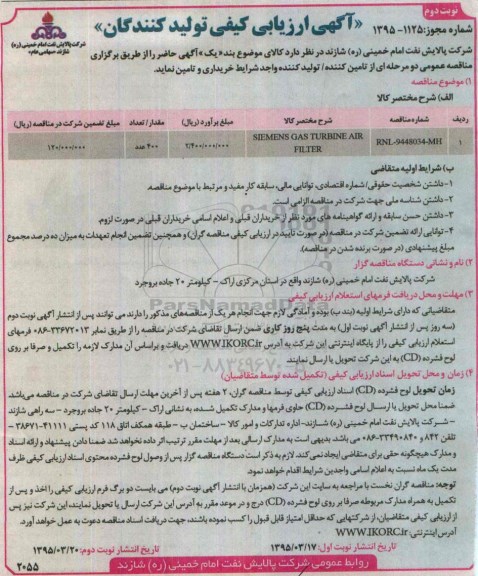 نوبت دوم
شماره مجوز: ۱۱۲۵- ۱۳۹۵
«آگهی ارزیابی کیفی تولید کنندگان»
شرکت پالایش نفت امام خمینی (ره)
شازند، سهامی عام
شرکت پالایش نفت امام خمینی (ره) شازند در نظر دارد کالای موضوع بند «یک» آگهی حاضر را از طریق برگزاری
مناقصه عمومی دو مرحله ای از تامین کننده / تولید کننده واجد شرایط خریداری و تامین نماید.
۱) موضوع مناقصه
الف) شرح مختصر کالا
ردیف شماره مناقصه شرح مختصر کالا مبلغ برآورد (ریال) مقدار / تعداد مبلغ تضمین شرکت در مناقصه (ریال)
۱ RNL-9448034-MH SIEMENS GAS TURBINE AIR FILTER ۲/۴۰۰/۰۰۰/۰۰۰ ۴۰۰ عدد ۱۲۰/۰۰۰/۰۰۰
ب) شرایط اولیه متقاضی
۱-داشتن شخصیت حقوقی / شماره اقتصادی، توانایی مالی، سابقه کار مفید و مرتبط با موضوع مناقصه.
۲-داشتن شناسه ملی جهت شرکت در مناقصه الزامی است.
۳-داشتن حسن سابقه و ارائه گواهینامه های مورد نظر از خریداران قبلی و اعلام اسامی خریداران قبلی در صورت لزوم.
۴-توانایی ارائه تضمین شرکت در مناقصه (در صورت تایید در ارزیابی کیفی مناقصه گران) و همچنین تضمین انجام تعهدات به میزان ده درصد مجموع
مبلغ پیشنهادی (در صورت برنده شدن در مناقصه).
۲) نام و نشانی دستگاه مناقصه گزار
شرکت پالایش نفت امام خمینی (ره) شازند واقع در استان مرکزی اراک – کیلومتر ۲۰ جاده بروجرد
۳) مهلت و محل دریافت فرمهای استعلام ارزیابی کیفی
متقاضیانی که دارای شرایط اولیه (بند ب) بوده و آمادگی لازم جهت انجام هر یک از مناقصه‌های مذکور را دارند می توانند پس از انتشار آگهی نوبت دوم
(سه روز پس از انتشار آگهی نوبت اول) به مدت پنج روز کاری ضمن ارسال تقاضای شرکت در مناقصه را از طریق نمابر ۳۳۶۷۲۰۱۳-۰۸۶ فرمهای
استعلام ارزیابی کیفی را از پایگاه اینترنتی این شرکت به آدرس WWW.IKORC.ir دریافت و براساس آن مدارک لازمه را تکمیل و صرفا بر روی
لوح فشرده (CD) به این شرکت تحویل یا ارسال نمایند.
۴) زمان و محل تحویل اسناد ارزیابی کیفی (تکمیل شده توسط متقاضیان)
زمان تحویل لوح فشرده (CD) اسناد ارزیابی کیفی توسط مناقصه گران، ۲ هفته پس از آخرین مهلت ارسال تقاضای شرکت در مناقصه می‌باشد.
ضمنا محل تحویل یا ارسال لوح فشرده (CD) حاوی فرمها و مدارک تکمیل شده، به نشانی اراک – کیلومتر ۲۰ جاده بروجرد – سه راهی شازند
– شرکت پالایش نفت امام خمینی (ره) شازند- اداره تدارکات و امور کالا – ساختمان ب – طبقه همکف اتاق ۱۱۸ کد پستی ۴۱۱۱۱ - ۳۸۶۷۱
تلفن ۸۴۲ و ۳۳۴۹۰۸۴۰-۰۸۶ می باشد بدیهی است به مدارک ارسالی بعد از مهلت مقرر ترتیب اثر داده نخواهد شد ضمنا دادن پیشنهاد و ارائه اسناد
و مدارک هیچگونه حقی برای متقاضی ایجاد نمی کند. لازم به ذکر است دستگاه مناقصه گزار پس از وصول لوح فشرده محتوی اسناد ارزیابی کیفی ظرف
مدت یک ماه نسبت به اعلام اسامی واجدین شرایط اقدام خواهد نمود.
توجه: مناقصه گران نخست با مراجعه به سایت این شرکت (همزمان با انتشار آگهی نوبت دوم) می بایست دو برگ فرم ارزیابی کیفی را اخذ و پس از
تکمیل به همراه مدارک مربوطه صرفا بر روی لوح فشرده (CD) درج و در موعد مقرر به آدرس این شرکت ارسال یا تحویل نمایند، این شرکت نیز پس
از ارزیابی کیفی متقاضیان، از شرکتهایی که حداقل امتیاز قابل قبول را کسب نموده باشند، جهت دریافت اسناد مناقصه دعوت به عمل خواهد آورد.
آدرس اینترنتی: WWW.IKORC.ir
تاریخ انتشار نوبت اول: ۱۳۹۵/۰۳/۱۷ تاریخ انتشار نوبت دوم: ۱۳۹۵/۰۳/۲۰
روابط عمومی شرکت پالایش نفت امام خمینی (ره) شازند
۲۰۵۵
ParsNamadData
۰۲۱-۸۸۳۴۹۶۷۰